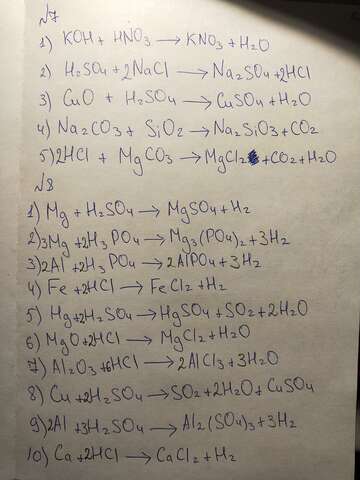 №7
1) KOH + HNO3 → KNO3 + H2O
2) H2SO4 + 2NaCl → Na2SO4 + 2HCl
3) CuO + H2SO4 → CuSO4 + H2O
4) Na2CO3 + SiO2 → Na2SiO3 + CO2
5) 2HCl + MgCO3 → MgCl2 + CO2 + H2O
№8
1) Mg + H2SO4 → MgSO4 + H2
2) 3Mg + 2H3PO4 → Mg3(PO4)2 + 3H2
3) 2Al + 2H3PO4 → 2AlPO4 + 3H2
4) Fe + 2HCl → FeCl2 + H2
5) Hg + 2H2SO4 → HgSO4 + SO2 + 2H2O
6) MgO + 2HCl → MgCl2 + H2O
7) Al2O3 + 6HCl → 2AlCl3 + 3H2O
8) Cu + 2H2SO4 → SO2 + 2H2O + CuSO4
9) 2Al + 3H2SO4 → Al2(SO4)3 + 3H2
10) Ca + 2HCl → CaCl2 + H2